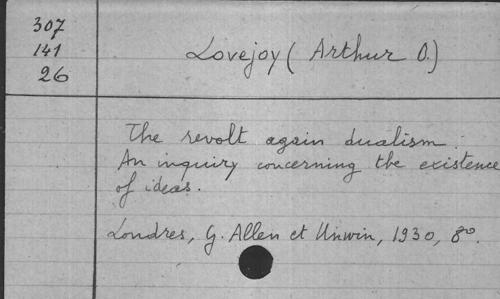 307
141
26
Lovejoy (Arthur O.)
The revolt again dualism.
An inquiry concerning the existence
of ideas.
Londres, G. Allen et Unwin, 1930, 8º.